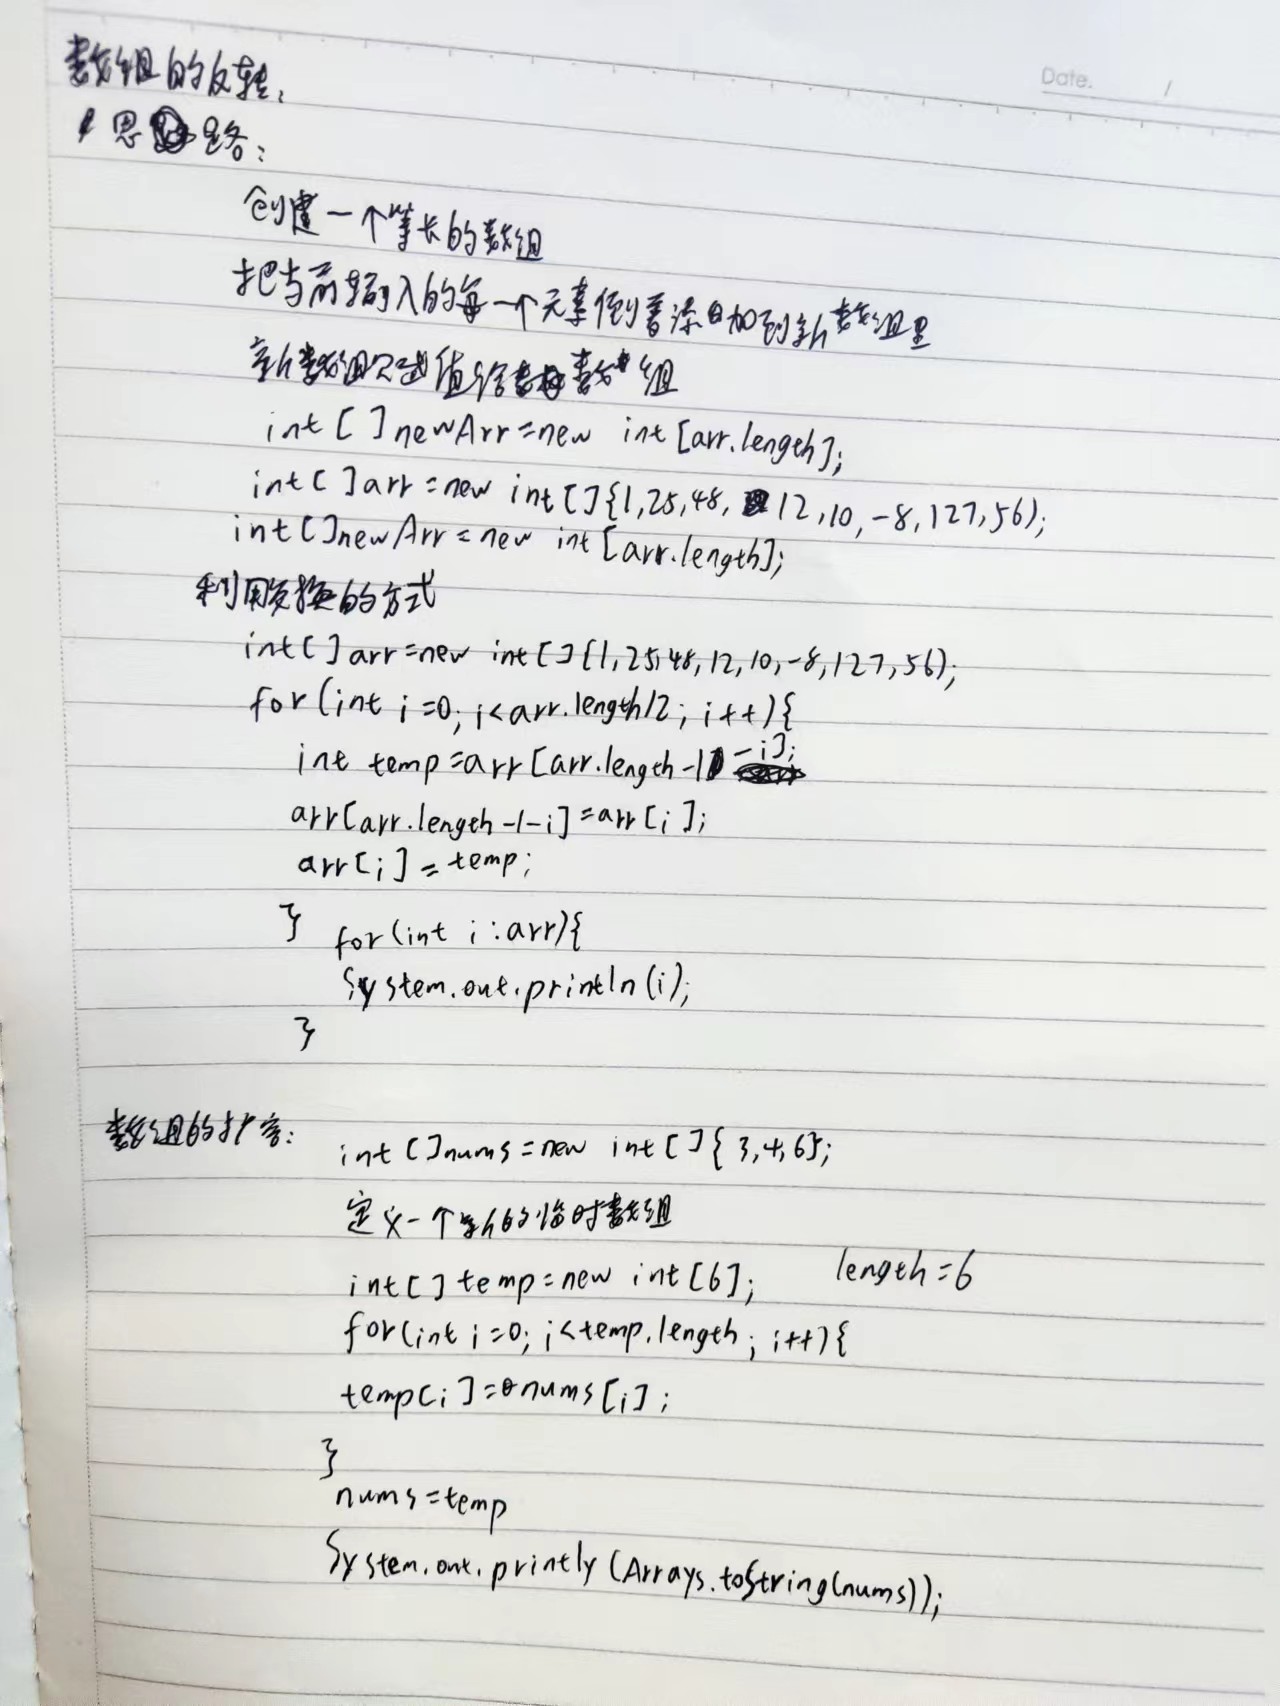 Date. /
数组的反转:
思路:
创建一个等长的数组
把当前输入的每一个元素倒着添加到新数组里
新数组赋值给 数组
int[]newArr=new int[arr.length];
int[]arr=new int[]{1,25,48, 12,10,-8,127,56);
int[]newArr=new int[arr.length];
利用交换的方式
int[]arr=new int[]{1,25,48,12,10,-8,127,56);
for(int i=0; i<arr.length/2; i++){
int temp=arr[arr.length-1-i];
arr[arr.length-1-i]=arr[i];
arr[i]=temp;
} for(int i:arr){
System.out.println(i);
}
数组的扩容: int[]nums=new int[]{3,4,6};
定义一个新的临时数组
int[] temp=new int[6]; length=6
for(int i=0; i<temp.length; i++){
temp[i]=nums[i];
}
nums=temp
System.out.printly(Arrays.toString(nums));